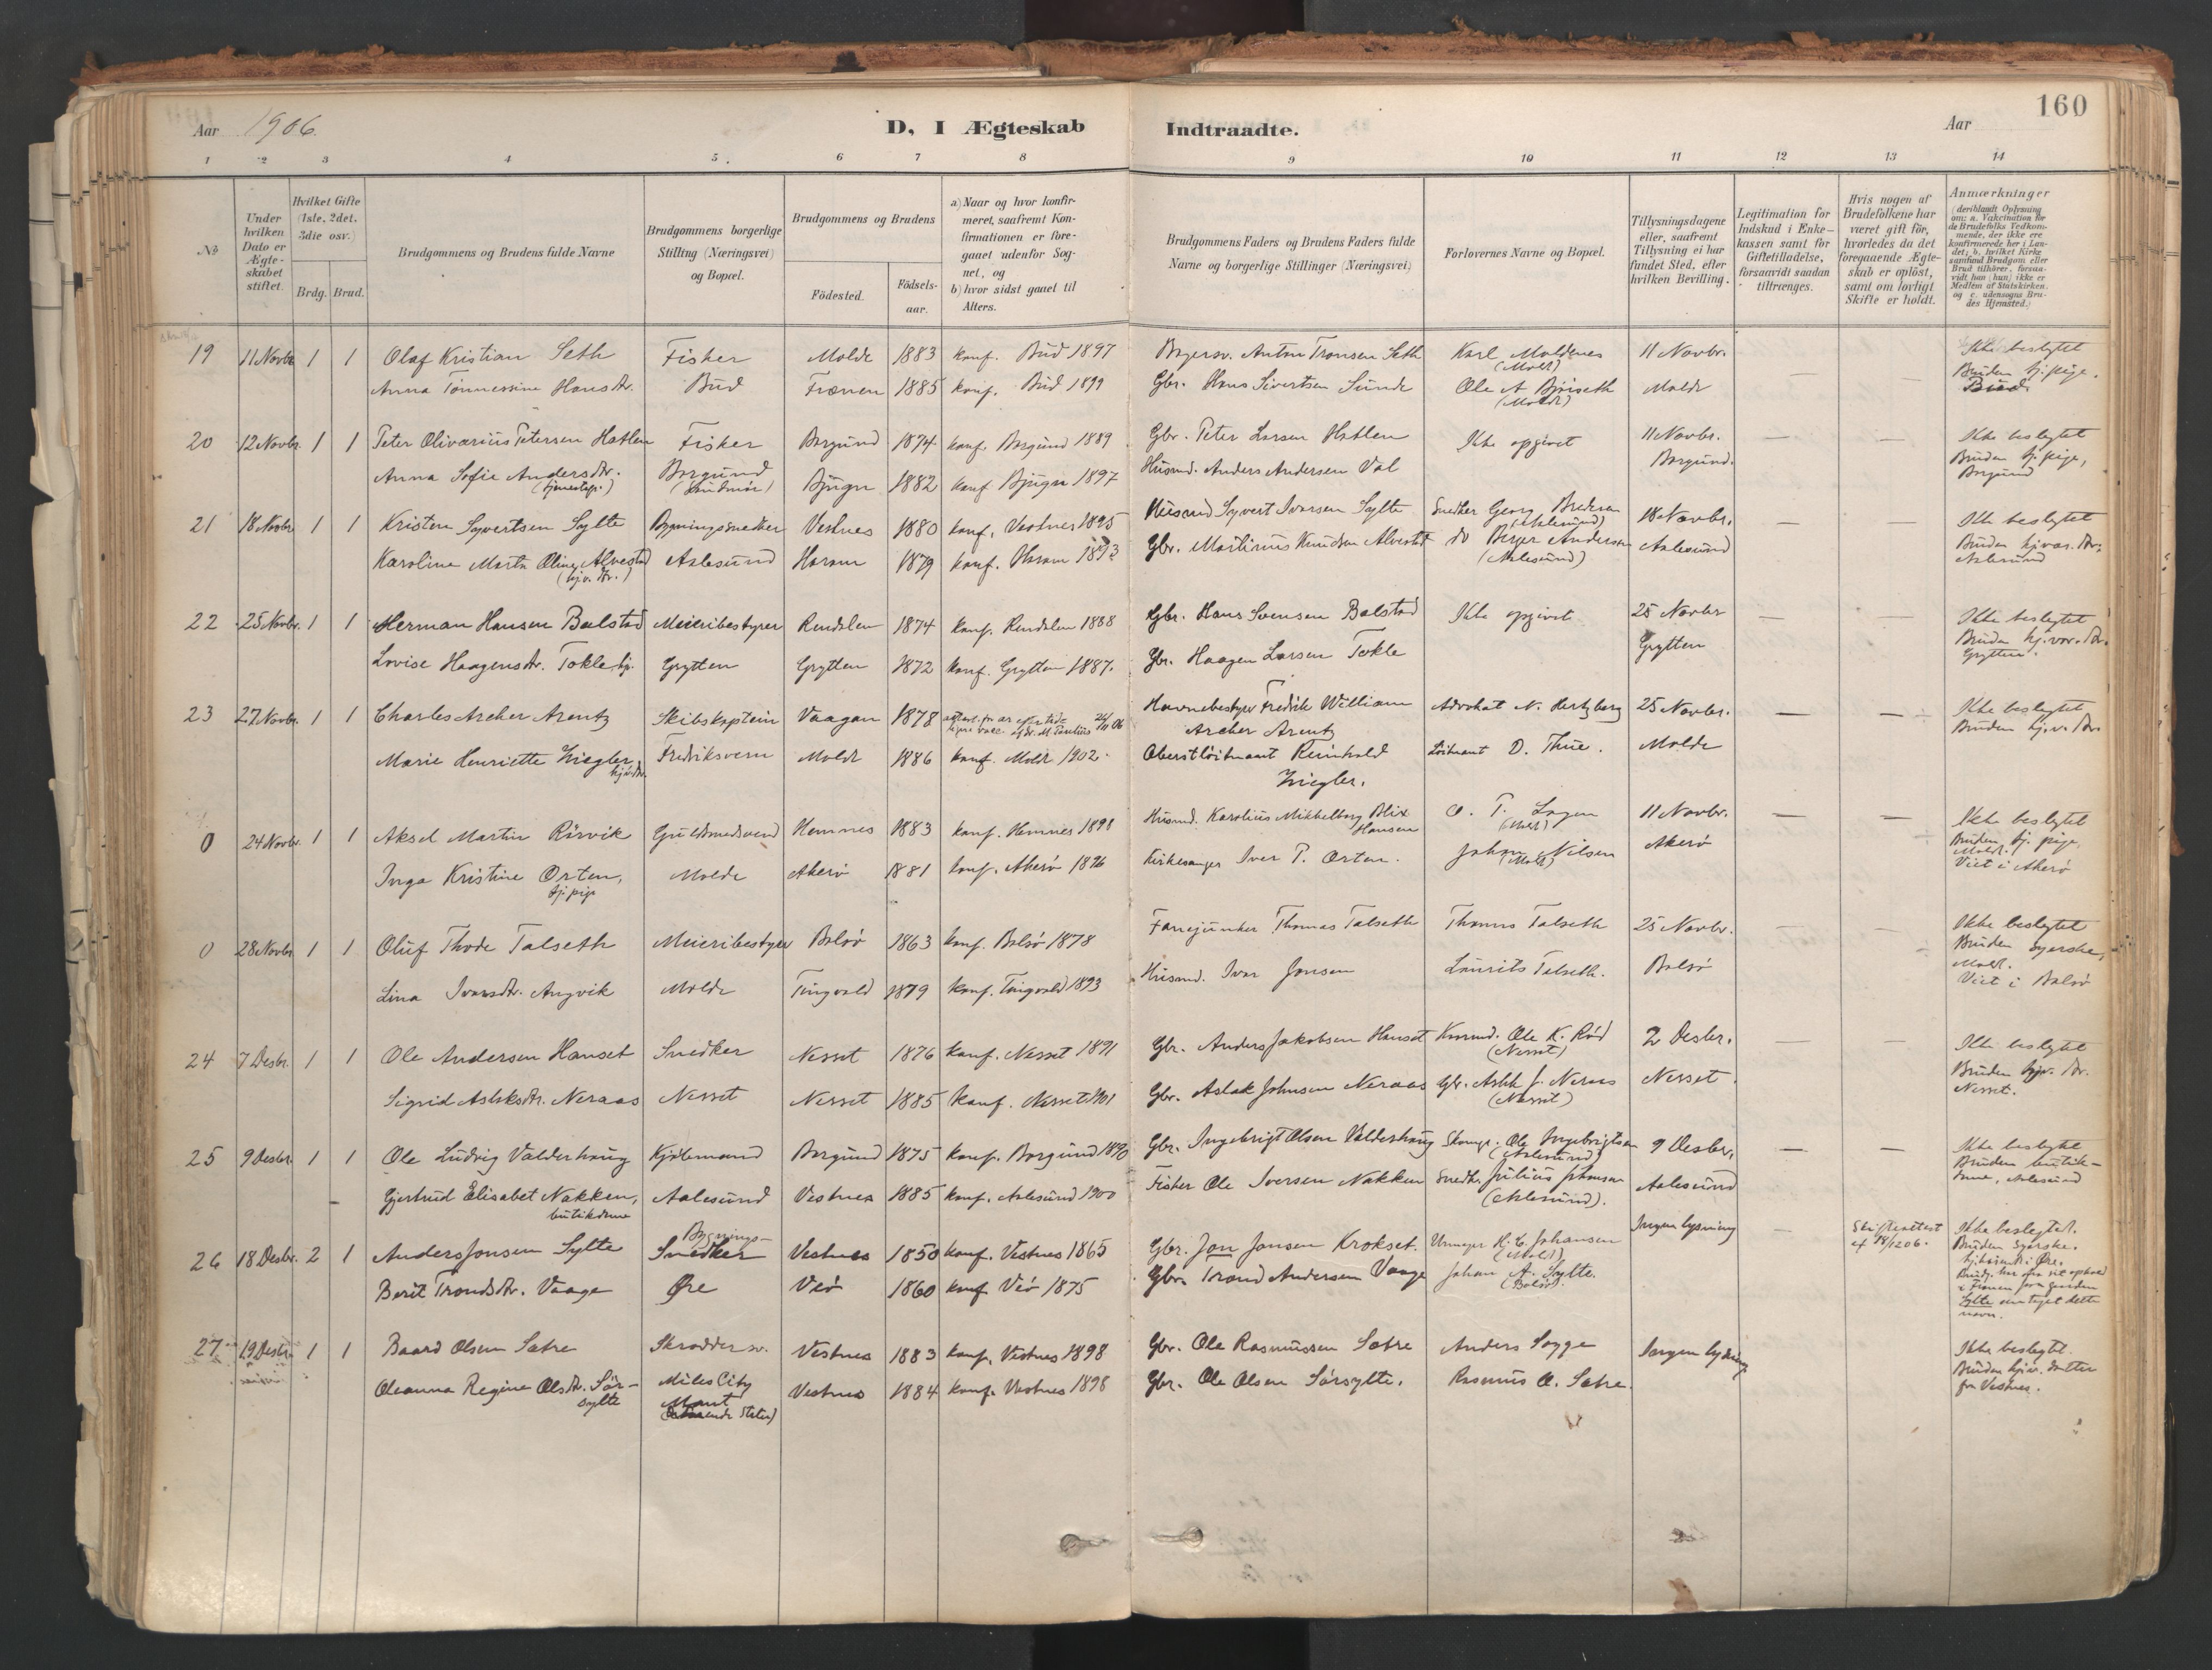 160
Aar 1906.
D, I Ægteskab Indtraadte.
Aar
1 2 3 4 5 6 7 8 9 10 11 12 13 14
No
Under hvilken Dato er Ægteskabet stiftet.
Hvilket Gifte (1ste, 2det. 3die osv.)
Brdg. Brud.
Brudgommens og Brudens fulde Navne
Brudgommens borgerlige Stilling (Næringsvei) og Bopæl.
Brudgommens og Brudens
Födested.
Födsels-aar.
a) Naar og hvor konfirmeret, saafremt Konfirmationen er foregaaet udenfor Sognet, og
b) hvor sidst gaaet til Alters.
Brudgommens Faders og Brudens Faders fulde Navne og borgerlige Stillinger (Næringsvei)
Forlovernes Navne og Bopæl.
Tillysningsdagene eller, saafremt Tillysning ei har fundet Sted, efter hvilken Bevilling.
Legitimation for Indskud i Enkekassen samt for Giftetilladelse, forsaavidt saadan tiltrænges.
Hvis nogen af Brudefolkene har været gift för, hvorledes da det foregaaende Ægteskab er oplöst, samt om lovligt Skifte er holdt.
Anmærkninger (deriblandt Oplysning om: a. Vakcination for de Brudefolks Vedkommende, der ikke ere konfirmerede her i Landet; b. hvilket Kirkesamfund Brudgom eller Brud tilhörer, forsaavidt han (hun) ikke er Medlem af Statskirken. og c. udensogns Brudes Hjemsted.)
19 11 Novbr. 1 1 Olaf Kristian Seth Fisker Molde 1883 konf. Bud 1897 Anton Tronsen Seth Karl Moldenes (Molde) 11 Novbr. Ikke beslegtet
Anna Tönnessine Hansdtr. Bud Frænen 1885 konf. Bud 1899 Gbr. Hans Sivertsen Sunde Ole A Björseth (Molde) Molde — — Bruden tj.pige. Bud.
20 12 Novbr. 1 1 Peter Olivarius Petersen Hatlen Fisker Borgund 1874 konf. Borgund 1889 Gbr. Peter Larsen Hatlen Ikke opgivet 11 Novbr. — — Ikke beslegtet
Anna Sofie Andersdtr. (tjenestep.) Borgund (Søndmör) Bjugn 1882 konf Bjugn 1897 Husmd. Anders Andersen Val Borgund. Bruden tj. pige, Borgund
21 18 Novbr 1 1 Kristen Syvertsen Sylte Bygningssnedker Vestnes 1880 konf. Vestnes 1895 Husmd Syvert Ivarsen Sylte Snedker Georg Bredesen (Aalesund) 18 Novbr. — — Ikke beslegtet
Karoline Marta Oline Alvestad (hjv. dtr.) Aalesund Haram 1879 konf. Haram 1893 Gbr. Martinius Knudsen Alvestad do Berger Andersen (Aalesund) Aalesund Bruden hjvær. dtr. Aalesund
22 25 Novbr. 1 1 Herman Hansen Bolstad Meieribestyrer Rendalen 1874 konf. Rendalen 1888 Gbr. Hans Svensen Bolstad Ikke opgivet 25 Novbr — — Ikke beslegtet
Lovise Haagensdtr. Tokle hj. Grytten Grytten 1872 konf. Grytten 1887. Gbr. Haagen Larsen Tokle Grytten Bruden hj.vær. dtr. Grytten.
23 27 Novbr. 1 1 Charles Archer Arentz Skibskaptein Vaagan 1878 26/11 06 Havnebestyrer Fredrik William Archer Arentz Advokat N. Hertzberg 25 Novbr. — — Ikke beslegtet
Marie Henriette Ziegler, hjv.dtr. Fredriksvern Molde 1886 konf. Molde 1902. Oberstlöitnant Reinhold Ziegler. Löitnant D. Thue. Molde Bruden hj.v. dtr
0 24 Novbr. 1 1 Aksel Martin Rörvik Guldsmedsvend Hemnes 1883 konf. Hemnes 1898 Husmd. Karolius Mikkelborg Blix Hansen O. T. Lagen (Molde) 11 Novbr. — — Ikke beslegtet
Inga Kristine Orten, tj.pige Molde Akerö 1881 konf. Akerö 1896 Kirkesanger Iver P. Orten. Johan Nilsen (Molde) Akerö Bruden tj. pige, Molde. Viet i Akerö
0 28 Novbr. 1 1 Oluf Thode Talseth Meieribestyrer Bolsö 1863 konf. Bolsö 1878 Fanejunker Thomas Talseth Thomas Talseth 25 Novbr. — — Ikke beslegtet
Lina Ivarsdtr. Angvik Molde Tingvold 1879 konf. Tingvold 1893 Husmd. Ivar Jonsen Laurits Talseth. Bolsö Bruden syerske, Molde. Viet i Bolsö
24 7 Desbr. 1 1 Ole Andersen Hanset Snedker Nesset 1876 konf. Nesset 1891 Gbr. Anders Jakobsen Hanset Ole K. Röd (Nesset) 2 Desbr. — — Ikke beslegtet
Sigrid Aslaksdtr. Neraas Nesset Nesset 1885 konf. Nesset 1901 Gbr. Aslak Johnsen Neraas Gbr. Aslak J. Neraas (Nesset) Nesset. Bruden hjv. dtr. Nesset.
25 9 Desbr. 1 1 Ole Ludvig Valderhaug Kjölemand Borgund 1875 konf. Borgund 1890 Gbr. Ingebrigt Olsen Valderhaug Ole Ingebrigtsen (Aalesund) 9 Desbr. — — Ikke beslegtet
Gjertrud Elisabet Nakken, butikdame Aalesund Vestnes 1885 konf. Aalesund 1900 Fisker Ole Iversen Nakken Snedk. Julius Johansen (Aalesund). Aalesund Bruden butikdame, Aalesund
26 18 Desbr. 2 1 Anders Jonsen Sylte Bygnings-Snedker Vestnes 1850 konf. Vestnes 1865 Gbr. Jon Jonsen Krokset. Urmager K. E. Johansen (Molde) Ingen lysning — Skifteattest af 18/12 06. Ikke beslegtet.
Berit Trondsdtr. Vaage Øre Veö 1860 konf Veö 1875 Gbr. Trond Andersen Vaage Johan A. Sylte. (Bolsö). Bruden syerske, hjhörende i Öre. Brudg. har fra sit ophold i Frænen paa gaarden Sylte antaget dette navn.
27 19 Desbr. 1 1 Baard Olsen Sætre Skrædder sv. Vestnes 1883 konf. Vestnes 1898 Gbr. Ole Rasmussen Sætre Anders Sogge Ingen lysning Ikke beslegtet.
Oleanna Regine Olsdtr. Sör-sylte Miles City Mont Vestnes 1884 konf. Vestnes 1898 Gbr. Ole Olsen Sörsylte. Rasmus O. Sætre. Bruden hjv. datter fra Vestnes.